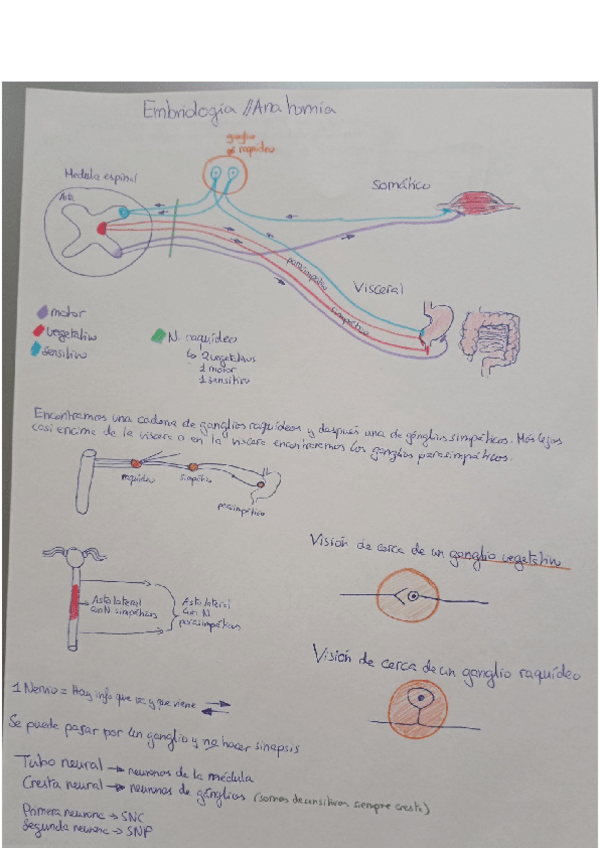 Embriología // Anatomía
ganglio
raquídeo
Medula espinal
Asta
Somático
parasimpático
simpático
Visceral
motor
vegetativo
sensitivo
N. raquídeo
↳ 2 vegetativos
1 motor
1 sensitivo
Encontramos una cadena de ganglios raquídeos y después una de gánglios simpáticos. Más lejos
casi encima de la viscera o en la viscera encontraremos los ganglios parasimpáticos.
raquídeo
simpático
parasimpático
Visión de cerca de un ganglio vegetativo
Asta lateral
con N simpáticas
Asta lateral
con N
parasimpáticas
Visión de cerca de un ganglio raquídeo
1 Nervio = Hay info que va y que viene
Se puede pasar por un ganglio y no hacer sinapsis
Tubo neural → neuronas de la médula
Cresta neural → neuronas de gánglios (somas de sensitivos siempre cresta)
Primera neurona → SNC
Segunda neurona → SNP